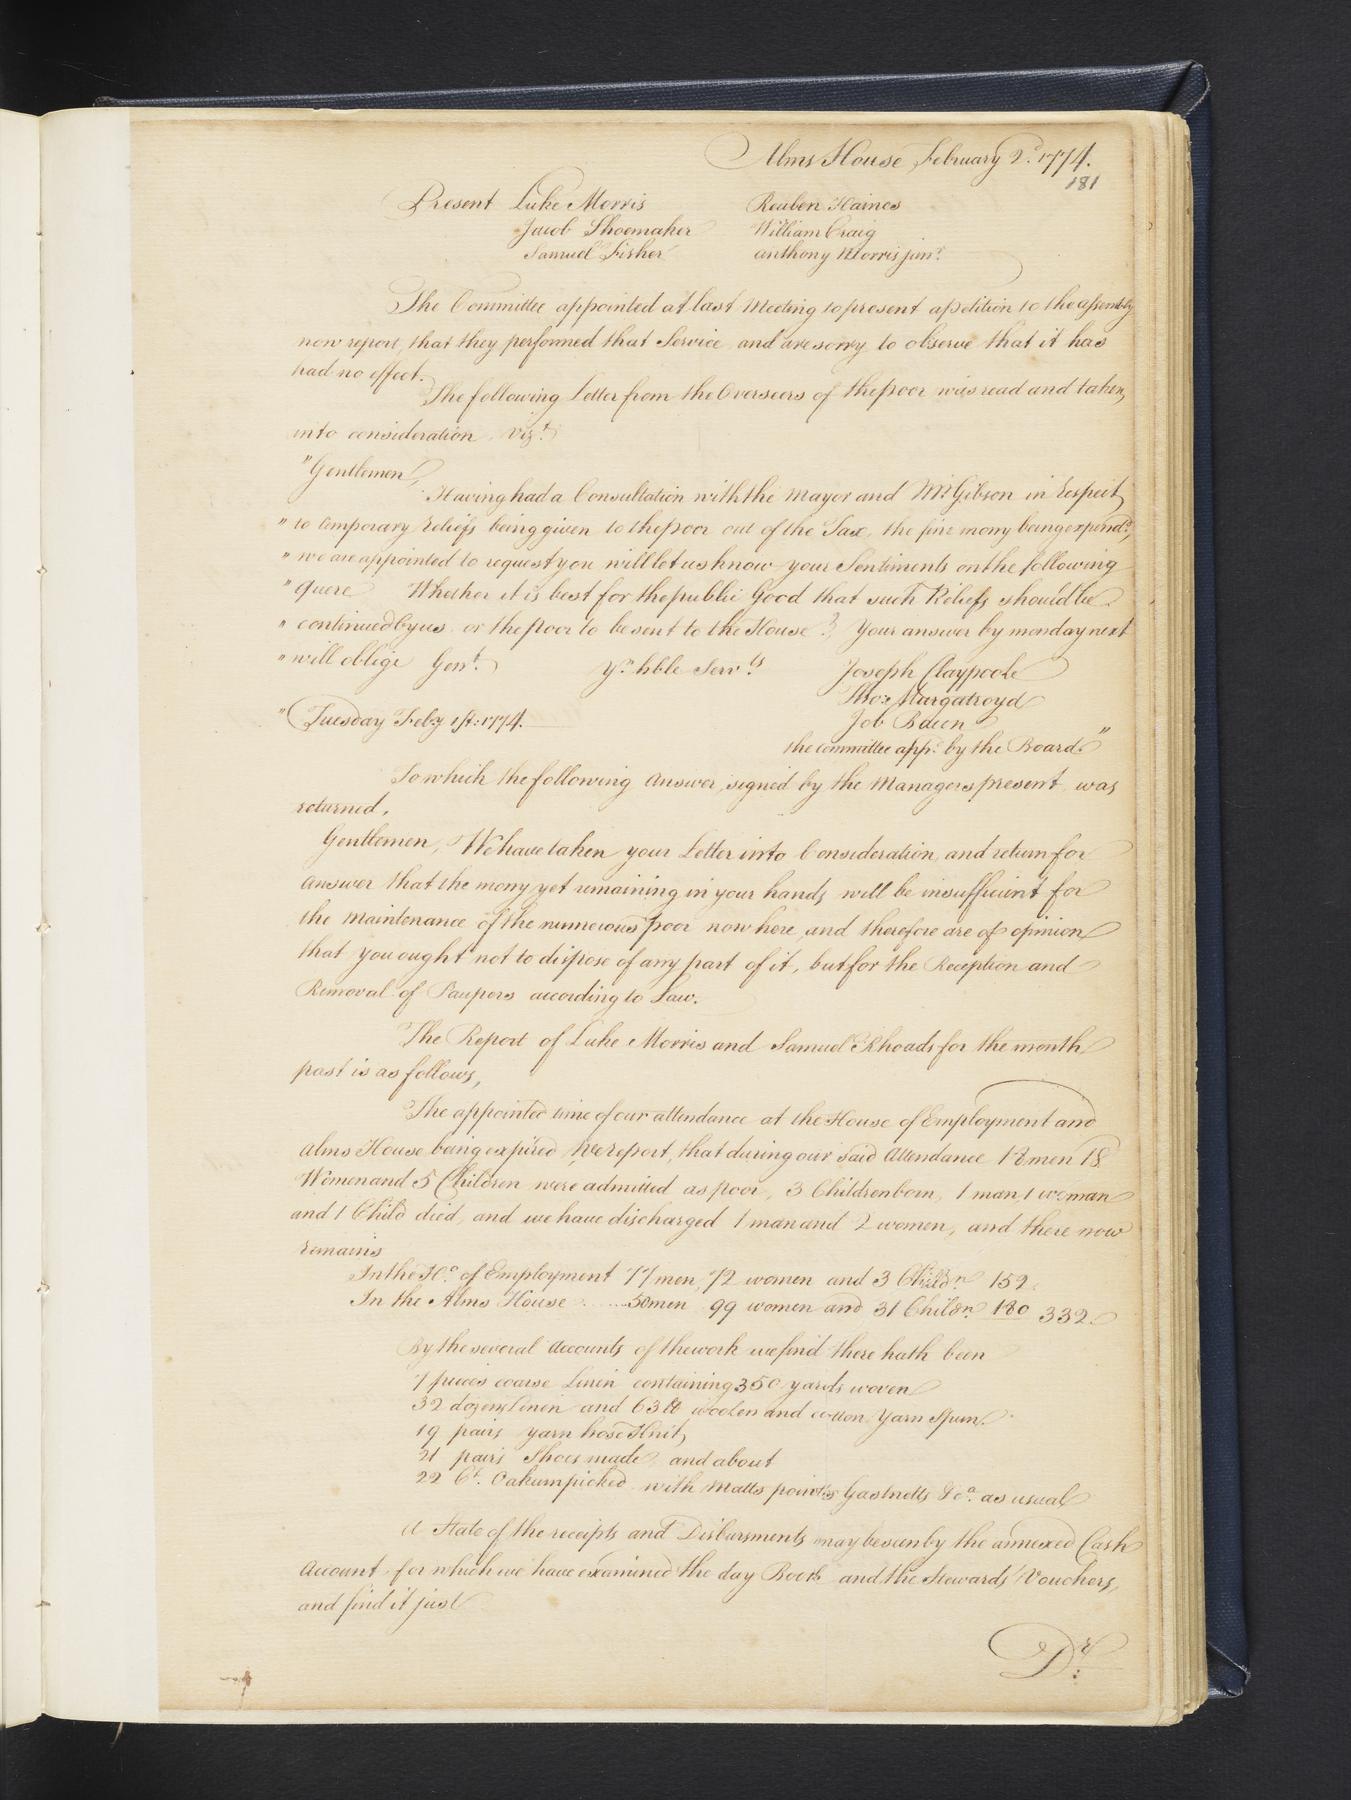 Alms House, February 2d. 1774.
181
Present Luke Morris Reuben Haines
Jacob Shoemaker William Craig
Samuel Fisher anthony Morris junr.
The Committee appointed at last Meeting to present a petition to the assembly
now report, that they performed that Service and are sorry to observe that it has
had no effect.
The following Letter from the Overseers of the poor was read and taken
into consideration, vizt.
"Gentlemen,
Having had a Consultation with the Mayor and Mr. Gibson in respect
" to temporary reliefs being given to the poor out of the Tax, the fine mony being expend'd,
" we are appointed to request you will let us know your Sentiments on the following
" quere Whether it is best for the public Good that such Reliefs should be
" continued by us or the poor to be sent to the House? Your answer by monday next
" will oblige Gent. Yr. hble Servts
Joseph Claypoole
Thos. Margatroyd
" Tuesday Feby 1st: 1774. Job Bacon
the committee appd. by the Board."
To which the following Answer, signed by the Managers present, was
returned,
Gentlemen, We have taken your Letter into Consideration, and return for
answer that the mony yet remaining in your hands will be insufficient for
the Maintenance of the numerous poor now here, and therefore are of opinion
that you ought not to dispose of any part of it, but for the Reception and
Removal of Paupers according to Law.
The Report of Luke Morris and Samuel Rhoads for the month
past is as follows,
The appointed time of our attendance at the House of Employment and
Alms House being expired, We report, that during our said Attendance 18 men 18
Women and 5 Children were admitted as poor, 3 Children born, 1 man, 1 woman
and 1 Child died, and we have discharged 1 man and 2 women, and there now
remains
In the Ho. of Employment 77 men, 72 women and 3 Childn. 152
In the Alms House 50 men 99 women and 31 Childn. 180 332.
By the several Accounts of the work we find there hath been
7 pieces coarse Linen containing 350 yards woven
32 dozens Linen and 63 lb woolen and cotton Yarn Spun.
19 pairs yarn hose Knit,
21 pairs Shoes made and about
22 Ct. Oakum picked with Matts points Gasknetts &ca. as usual
A State of the receipts and Disbursments may be seen by the annexed Cash
Account, for which we have examined the day Book and the Stewards Vouchers,
and find it just
Dr.